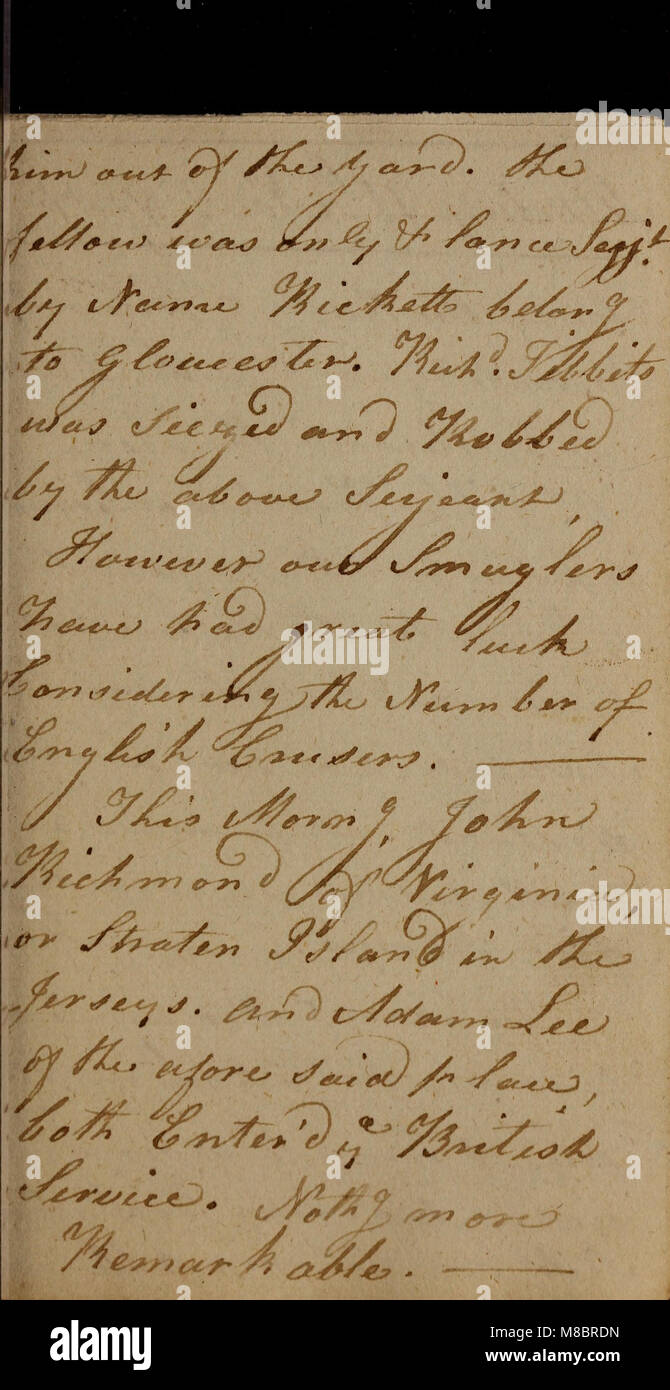 him out of the yard. the
fellow was only a lance Serjt.
by Name Ricketts belong
to Gloucester. Richd. Tibbits
was Siezed and Robbed
by the above Serjeant,
However our Smuglers
have had great luck
Considering the Number of
English Crusers. —
This Morng. John
Richmond of Virginia,
or Straten Island in the
Jerseys. and Adam Lee
of the afore said place,
both Enter'd ye British
Service. Nothg more
Remarkable. —
alamy
Image ID: M8BRDN
www.alamy.com